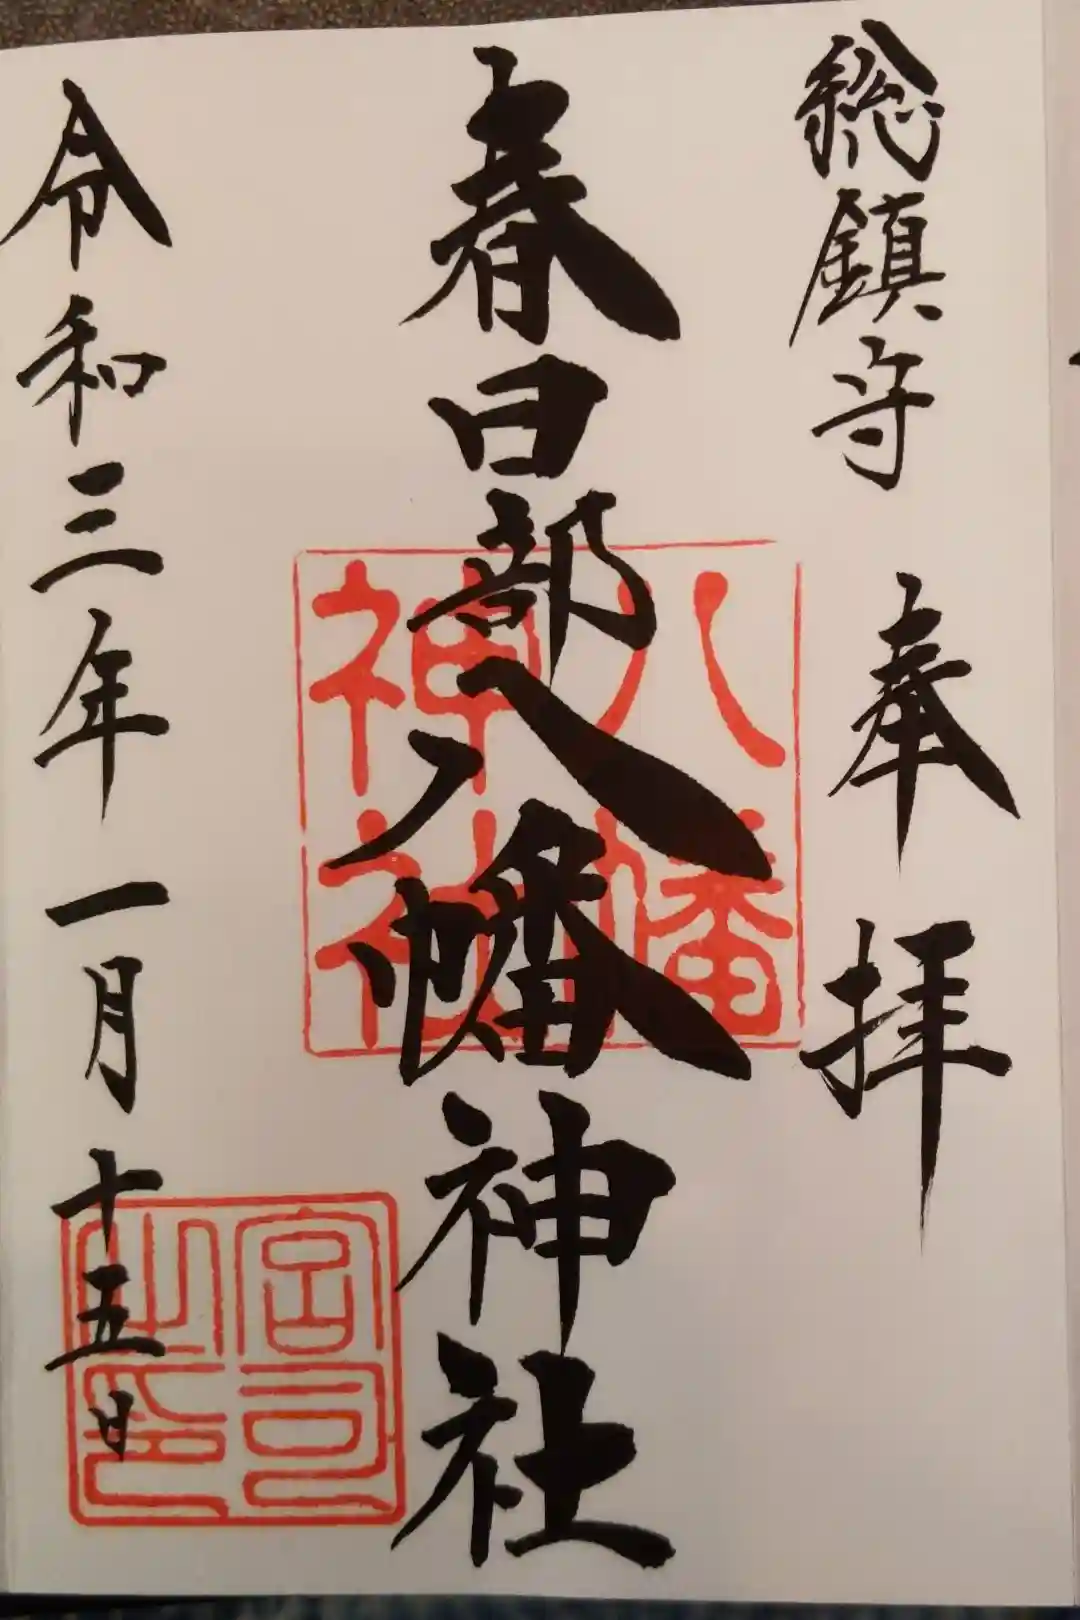 総鎮守 奉拝
春日部八幡神社
令和三年一月十五日
八幡
神社
宮司
之印